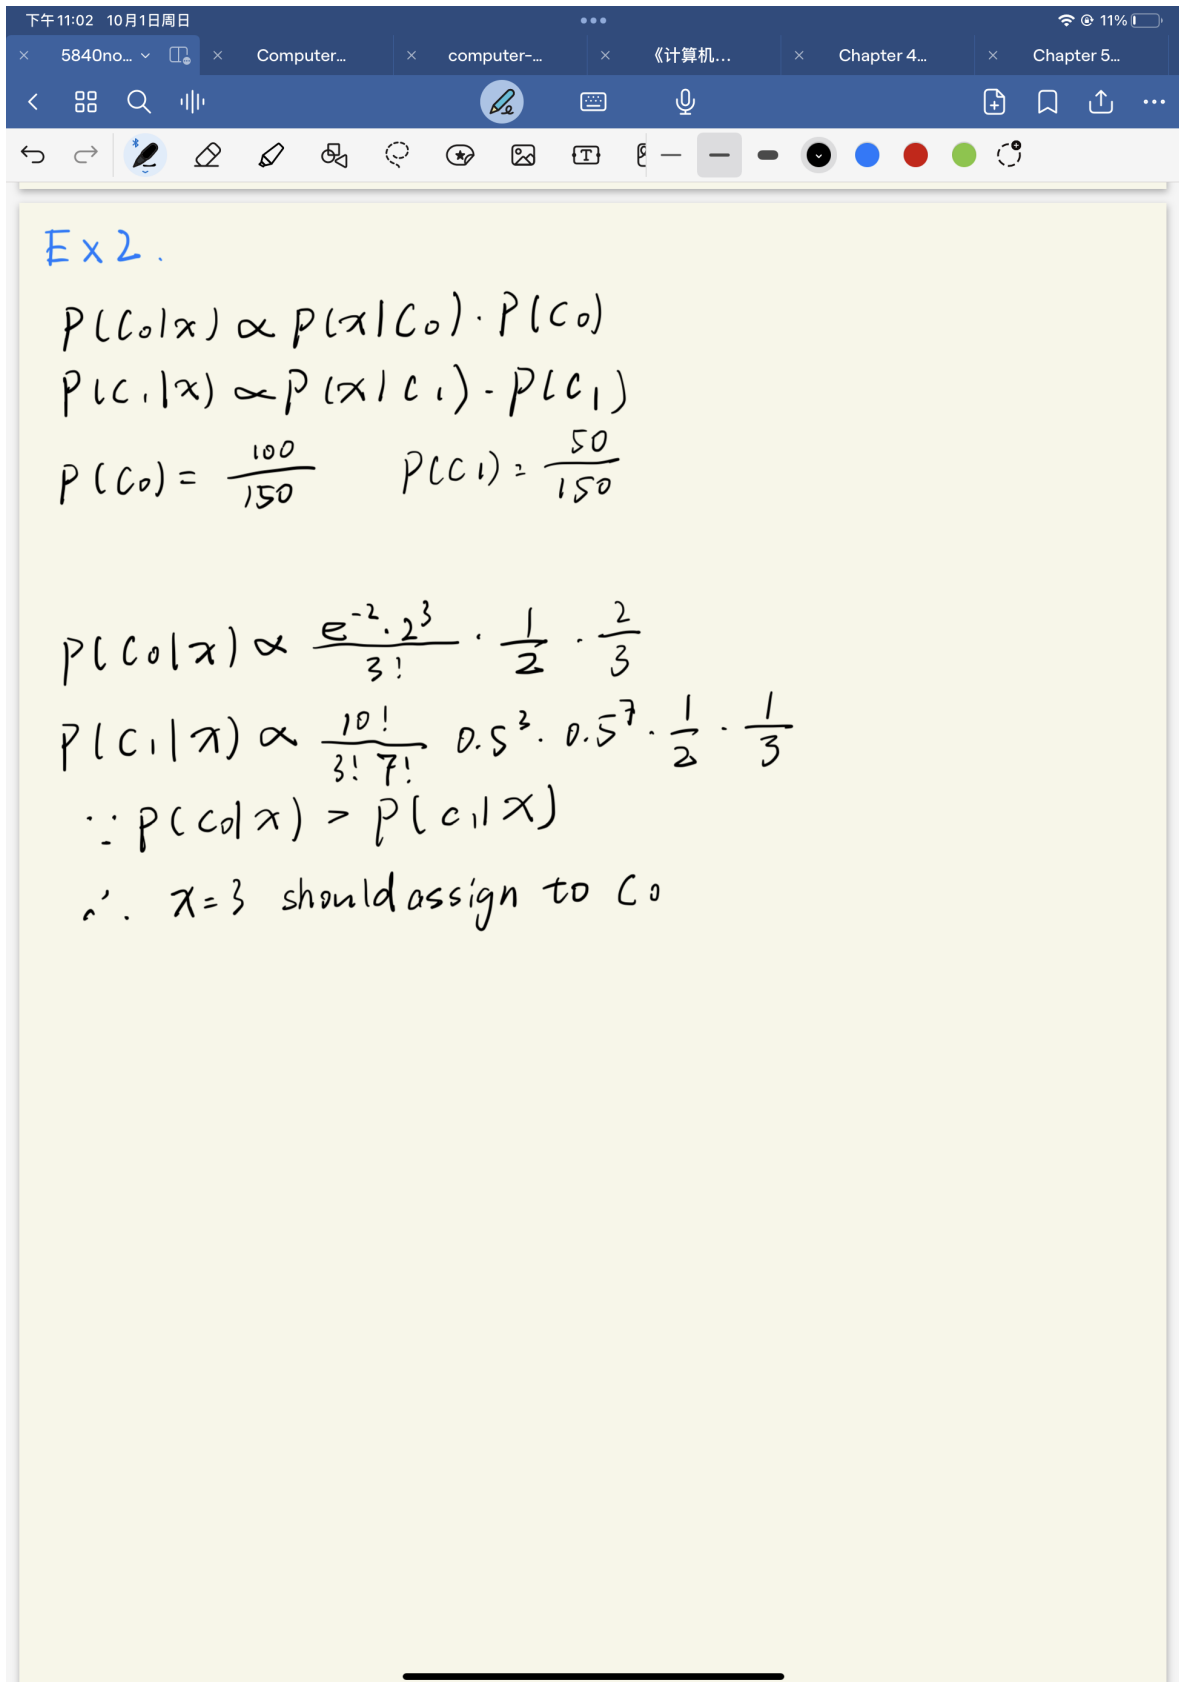 下午11:02 10月1日周日
11%
5840no... Computer... computer-... 《计算机... Chapter 4... Chapter 5...
Ex2.
P(C₀|x) ∝ P(x|C₀) · P(C₀)
P(C₁|x) ∝ P(x|C₁) · P(C₁)
P(C₀) = 100/150 P(C₁) = 50/150
P(C₀|x) ∝ e⁻²·2³/3! · 1/2 · 2/3
P(C₁|x) ∝ 10!/3!7! 0.5³ · 0.5⁷ · 1/2 · 1/3
∵ P(C₀|x) > P(C₁|x)
∴ x=3 should assign to C₀